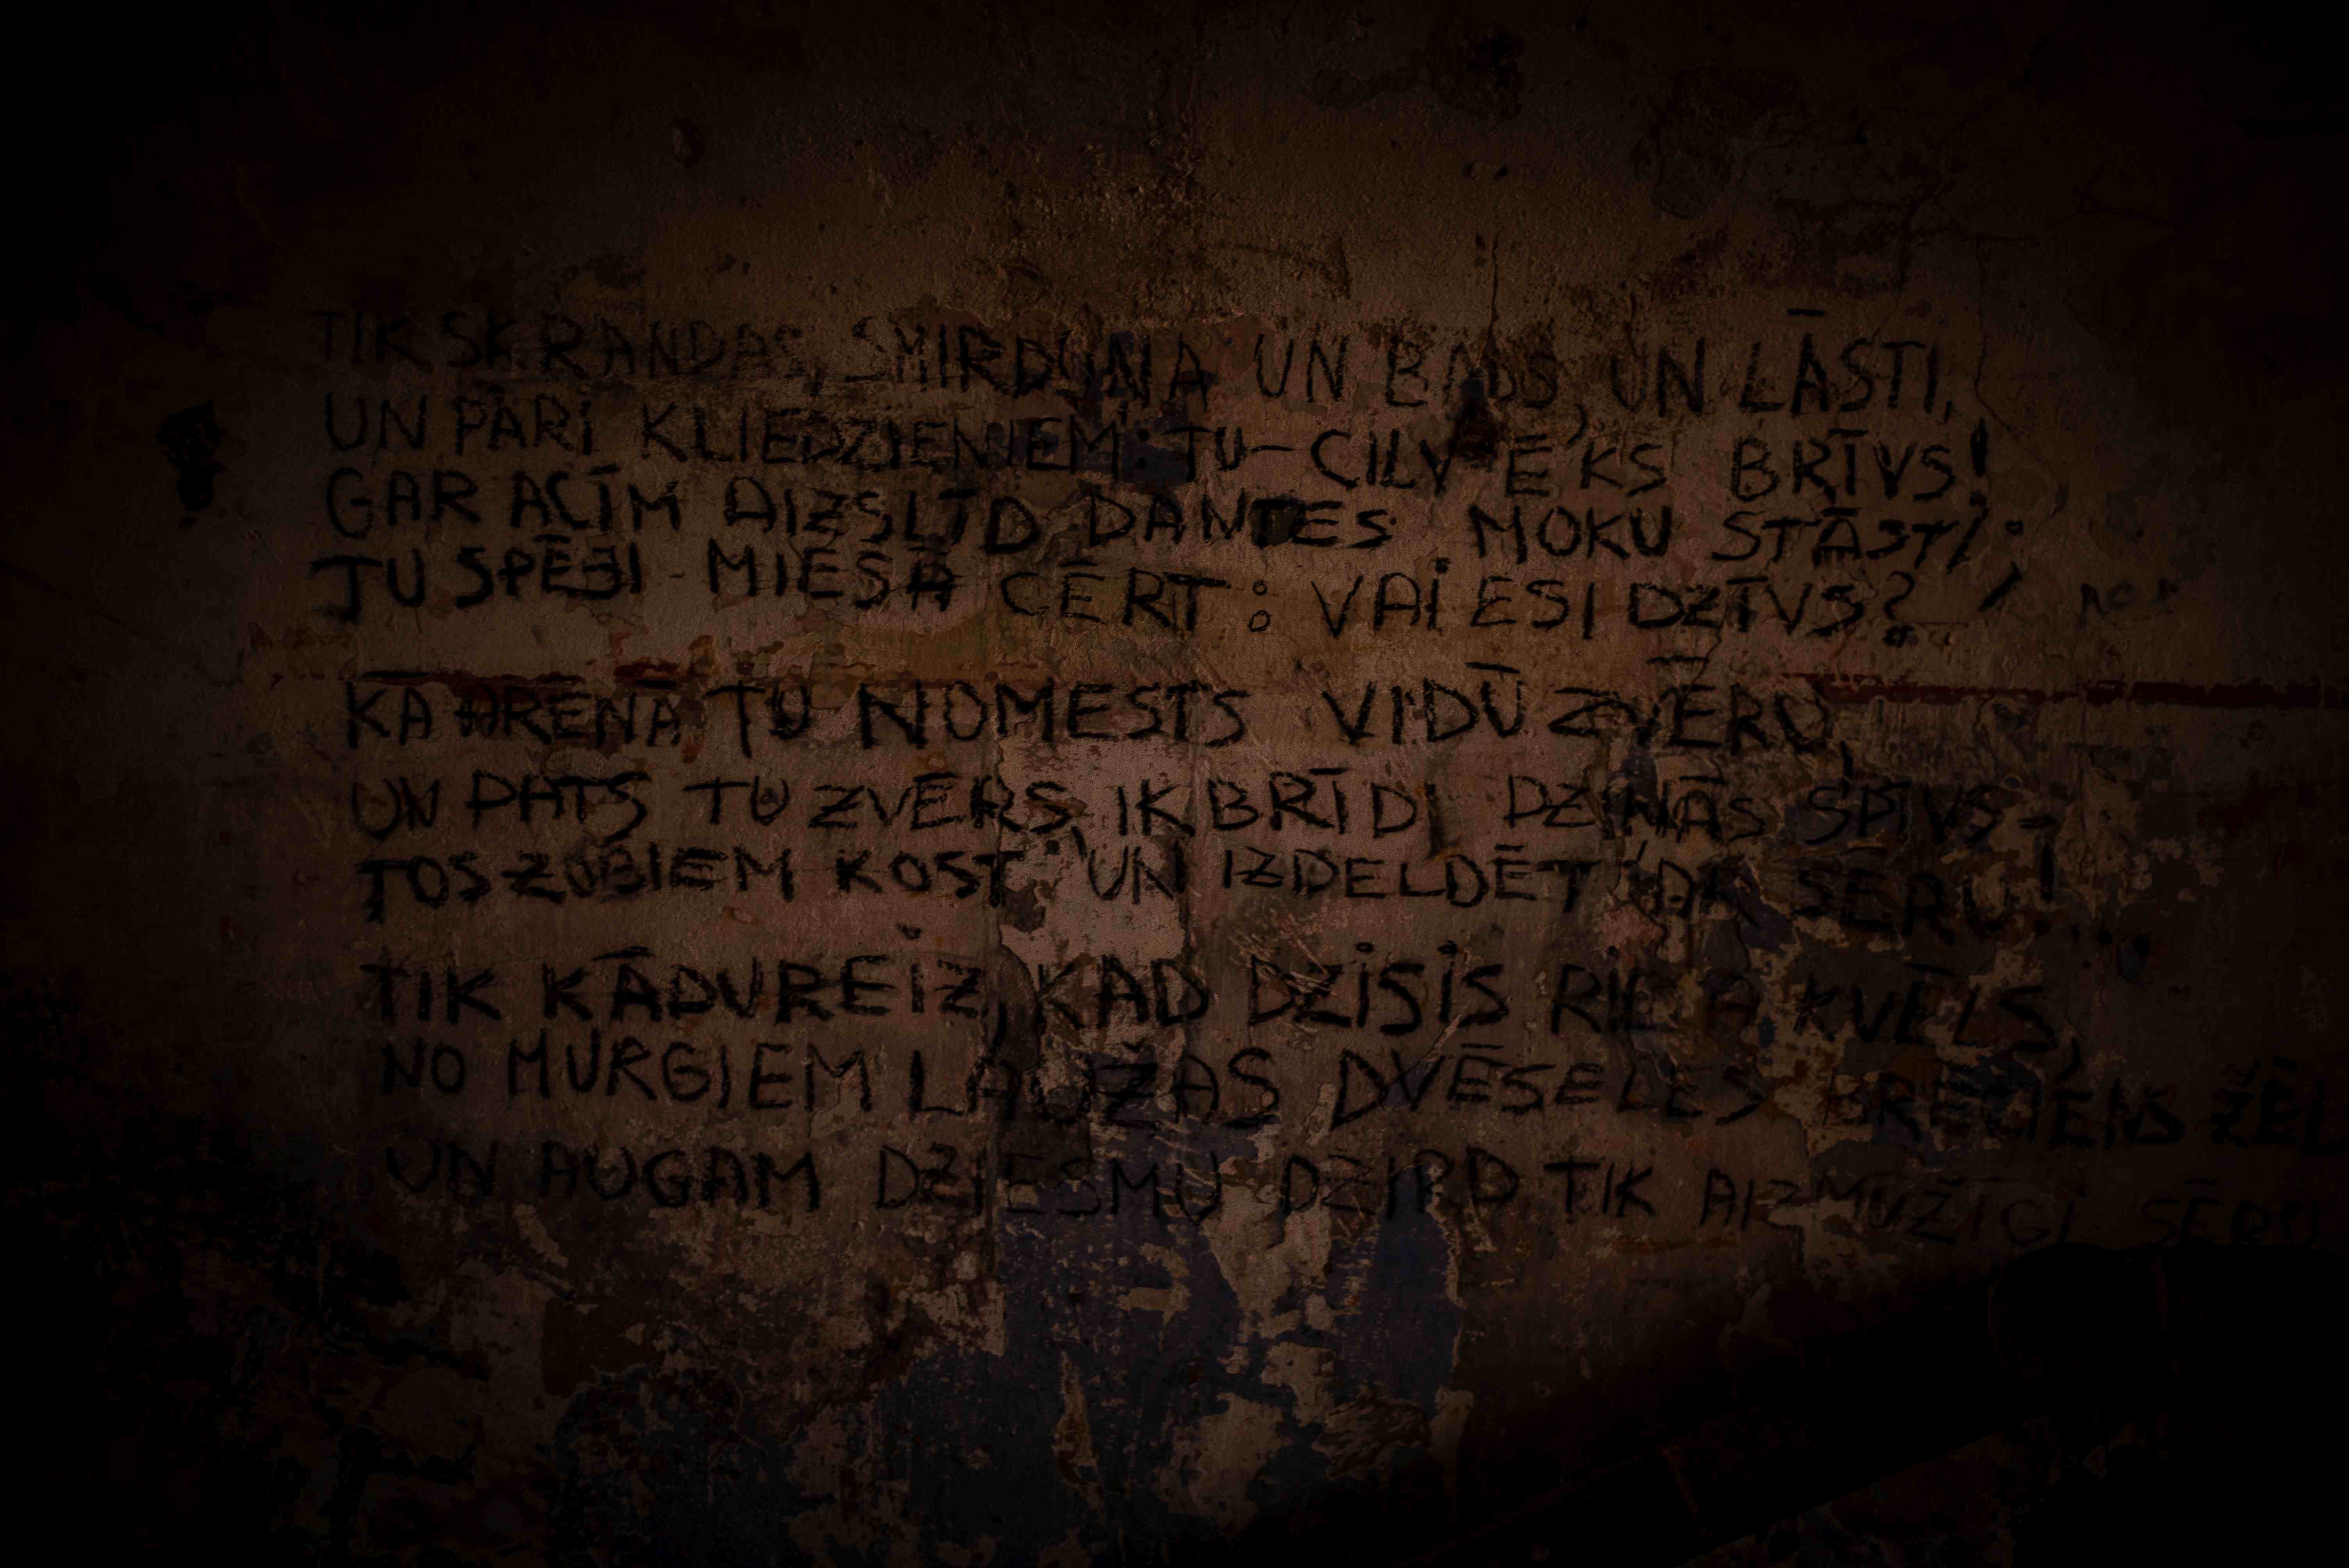 TIK SKRANDAS, SMIRDOŅA UN BADS, UN LĀSTI,
UN PĀRI KLIEDZIENIEM: TU – CILVĒKS BRĪVS!
GAR ACĪM AIZSLĪD DANTES MOKU STĀSTI;
TU SPĒJI MIESĀ CĒRT: VAI ESI DZĪVS?
KĀ ARĒNĀ TU NOMESTS VIDŪ ZVĒRU,
UN PATS TU ZVĒRS, IK BRĪDI DZIŅĀS SPĪVS –
TOS ZOBIEM KOST UN IZDELDĒT AR SĒRU!...
TIK KĀDUREIZ, KAD DZISIS RIETA KVĒLS,
NO MURGIEM LAUŽAS DVĒSELES BRĒCIENS ŽĒL
UN AUGAM DZIESMU DZIRD TIK AIZMŪŽĪGI SĒRU